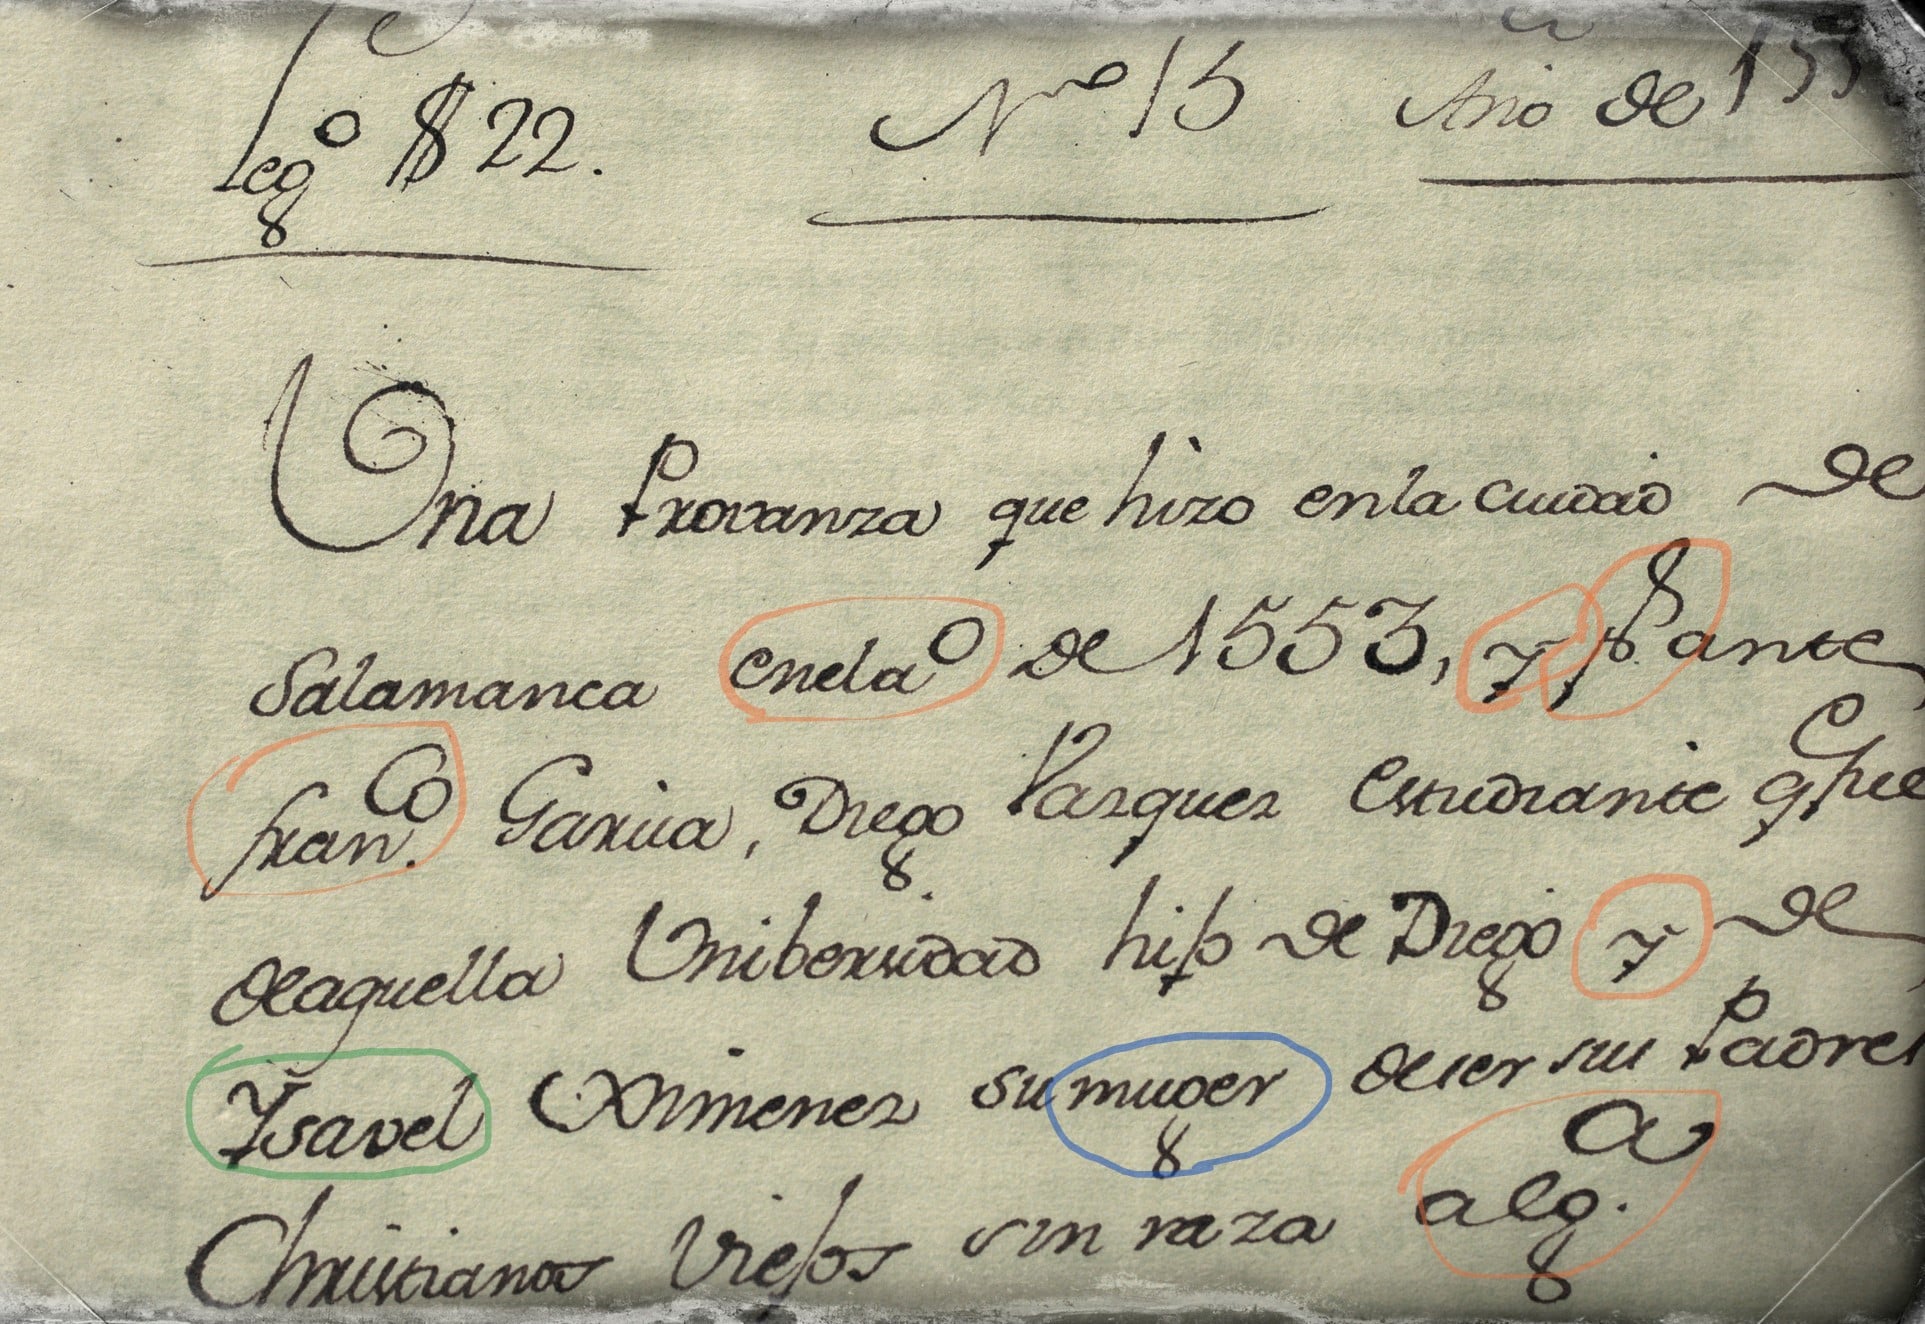 Legº $ 22. Nº 15 Año de 155
Una Provanza que hizo enla ciudad de
Salamanca enelaº de 1553, y pº ante
fran.co Garcia, Diego Vazquez estudiante que
deaquella Unibersidad hijo de Diego y de
Ysavel Ximenez sumuger deser sus Padres
Christianos viejos sin raza alg.a